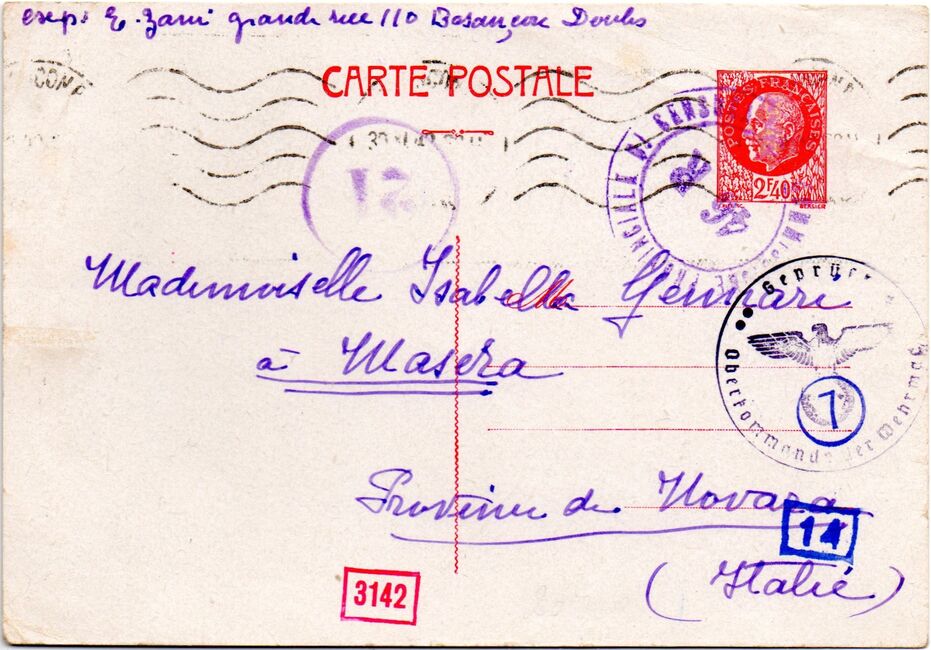 exp: E. Zani grande rue 110 Besançon Doubs
CARTE POSTALE
POSTES FRANÇAISES
2F40
BERSIER
Mademoiselle Isabella Gennari
à Masera
Province de Novara
(Italie)
Geprüft
Oberkommando der Wehrmacht
7
14
3142